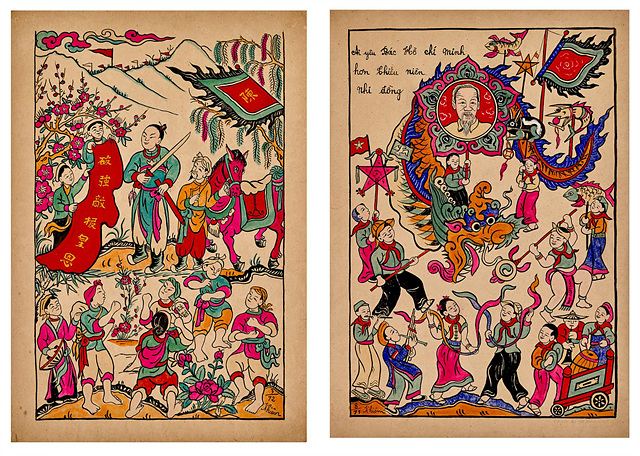 陳
破強敵報皇恩
72
Ai yêu Bác Hồ Chí Minh
hơn Thiếu niên
Nhi đồng
71